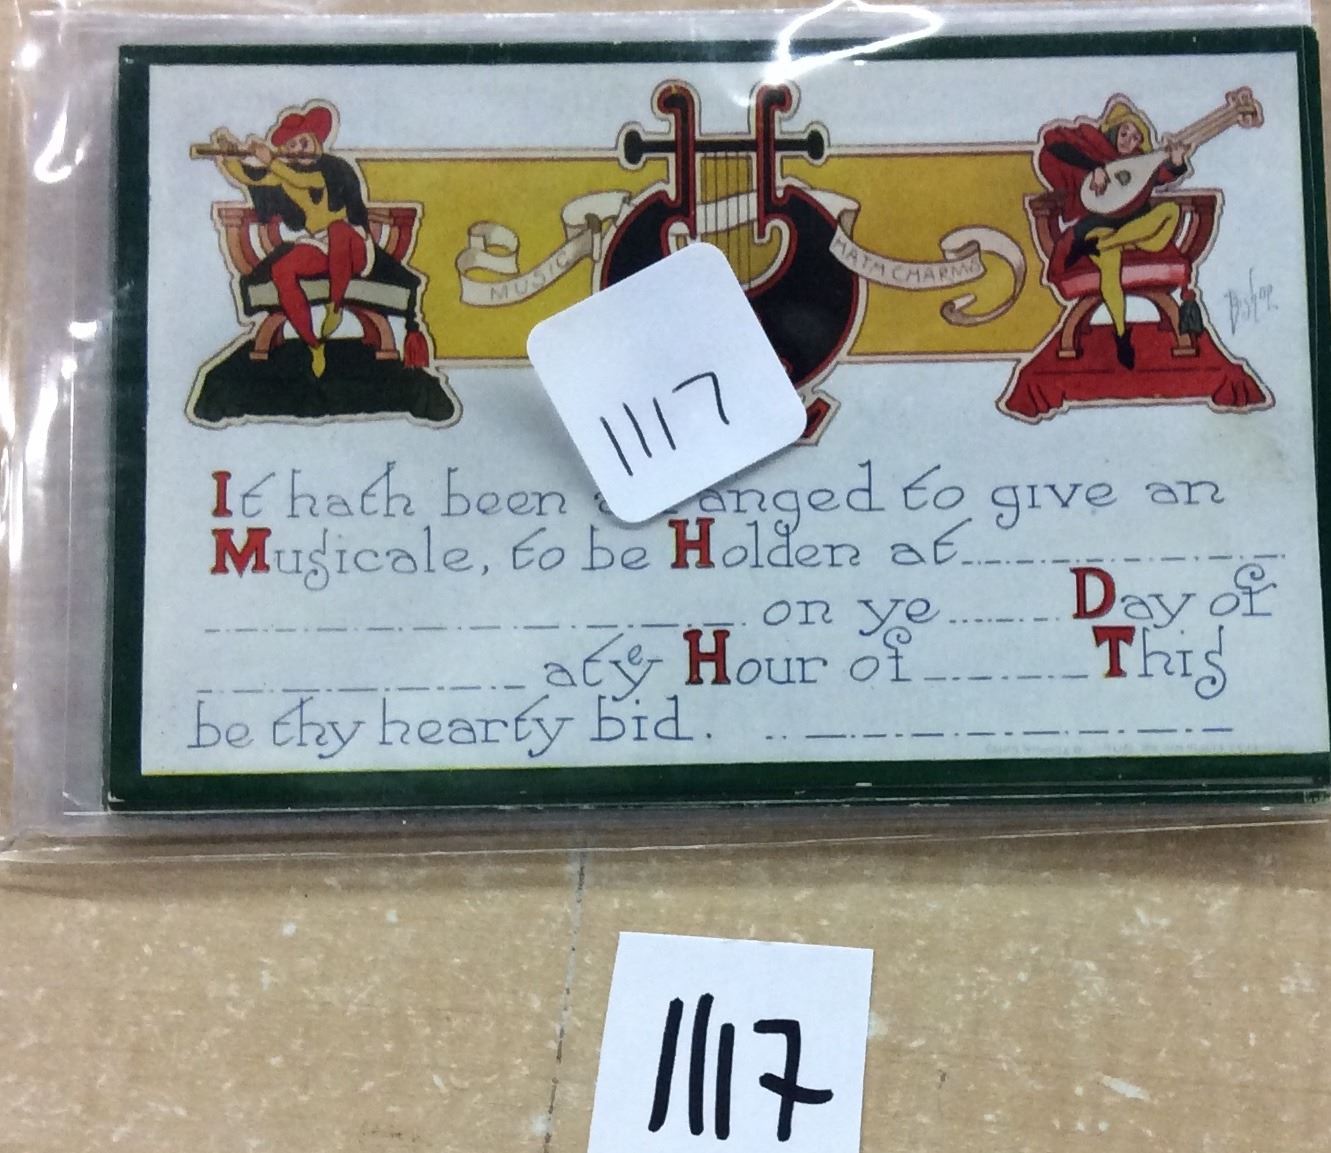 MUSIC HATH CHARMS
Bishop
1117
It hath been arranged to give an
Musicale, to be Holden at
on ye Day of
at ye Hour of This
be thy hearty bid.
1117